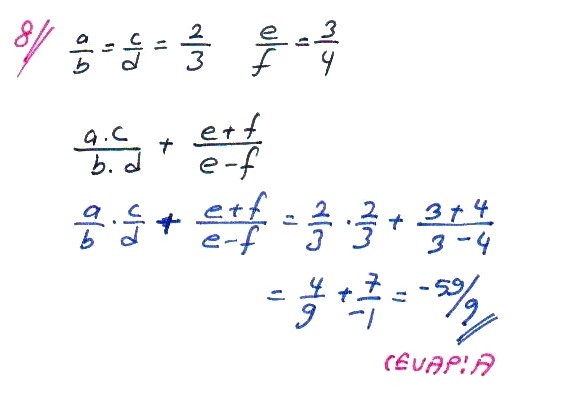 8// a/b = c/d = 2/3 e/f = 3/4
a.c/b.d + e+f/e-f
a/b . c/d + e+f/e-f = 2/3 . 2/3 + 3+4/3-4
= 4/9 + 7/-1 = -59/9
CEVAP: A